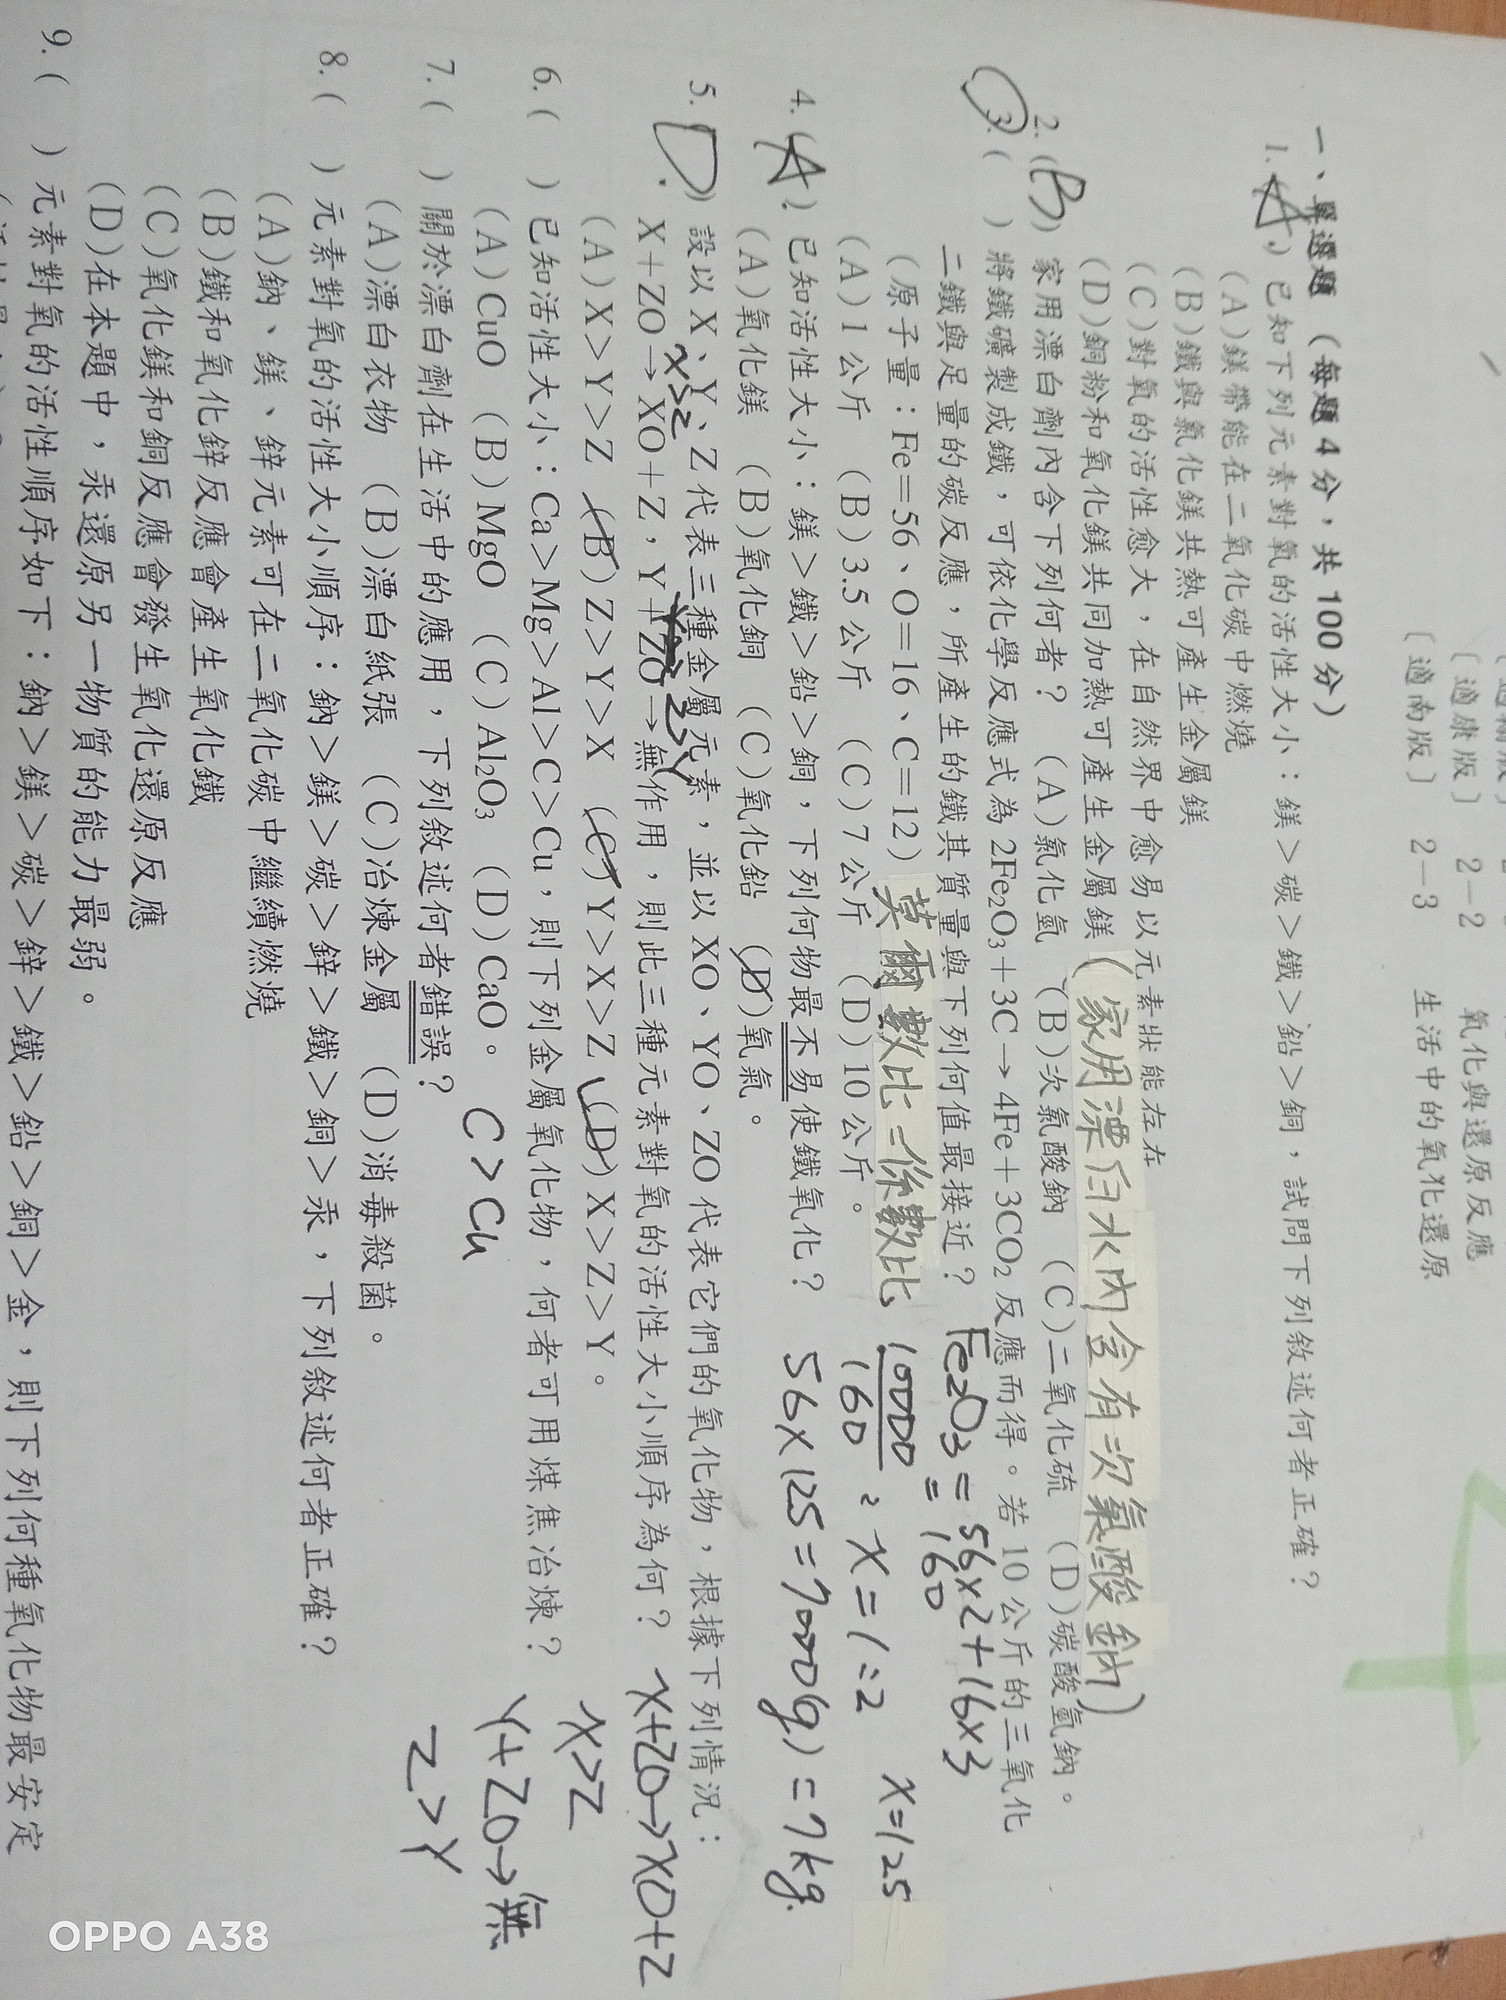 〔適康版〕 2－2 氧化與還原反應
〔適南版〕 2－3 生活中的氧化還原
一、單選題（每題4分，共100分）
1.(A)已知下列元素對氧的活性大小：鎂＞碳＞鐵＞鉛＞銅，試問下列敘述何者正確？
(A)鎂帶能在二氧化碳中燃燒
(B)鐵與氯化鎂共熱可產生金屬鎂
(C)對氧的活性愈大，在自然界中愈易以元素狀態存在
(D)銅粉和氧化鎂共同加熱可產生金屬鎂 (家用漂白水內含有次氯酸鈉)
2.(B)家用漂白劑內含下列何者？ (A)氯化氫 (B)次氯酸鈉 (C)二氧化硫 (D)碳酸氫鈉。
3.( )將鐵礦製成鐵，可依化學反應式為2Fe₂O₃＋3C→4Fe＋3CO₂反應而得。若10公斤的三氧化
二鐵與足量的碳反應，所產生的鐵其質量與下列何值最接近？ Fe₂O₃=56x2+16x3
=160
(原子量：Fe＝56、O＝16、C＝12) 莫爾數比=係數比 10000/160 : x = 1:2 x=125
(A)1公斤 (B)3.5公斤 (C)7公斤 (D)10公斤。
56x125=7000(g)=7kg.
4.(A)已知活性大小：鎂＞鐵＞鉛＞銅，下列何物最不易使鐵氧化？
(A)氧化鎂 (B)氧化銅 (C)氧化鉛 (D)氧氣。
5.(D)設以X、Y、Z代表三種金屬元素，並以XO、YO、ZO代表它們的氧化物，根據下列情況：
X>Z Z>Y
X＋ZO→XO＋Z，Y＋ZO→無作用，則此三種元素對氧的活性大小順序為何？ X+ZO→XO+Z
(A)X＞Y＞Z (B)Z＞Y＞X (C)Y＞X＞Z (D)X＞Z＞Y。 X>Z
6.( )已知活性大小：Ca＞Mg＞Al＞C＞Cu，則下列金屬氧化物，何者可用煤焦冶煉？ Y+ZO→無
(A)CuO (B)MgO (C)Al₂O₃ (D)CaO。 C>Cu Z>Y
7.( )關於漂白劑在生活中的應用，下列敘述何者錯誤？
(A)漂白衣物 (B)漂白紙張 (C)冶煉金屬 (D)消毒殺菌。
8.( )元素對氧的活性大小順序：鈉＞鎂＞碳＞鋅＞鐵＞銅＞汞，下列敘述何者正確？
(A)鈉、鎂、鋅元素可在二氧化碳中繼續燃燒
(B)鐵和氧化鋅反應會產生氧化鐵
(C)氧化鎂和銅反應會發生氧化還原反應
(D)在本題中，汞還原另一物質的能力最弱。
9.( )元素對氧的活性順序如下：鈉＞鎂＞碳＞鋅＞鐵＞鉛＞銅＞金，則下列何種氧化物最安定
OPPO A38